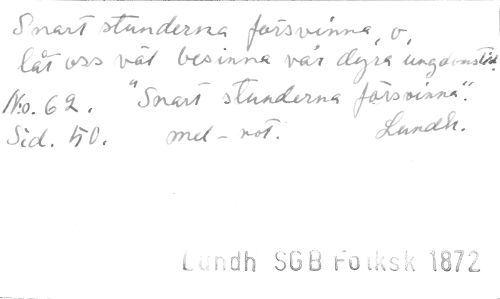 Snart stunderna försvinna, o,
låt oss väl besinna vår dyra ungdomstid.
No. 62. "Snart stunderna försvinna".
Sid. 50. mel-not. Lundh.
Lundh SGB Folksk 1872